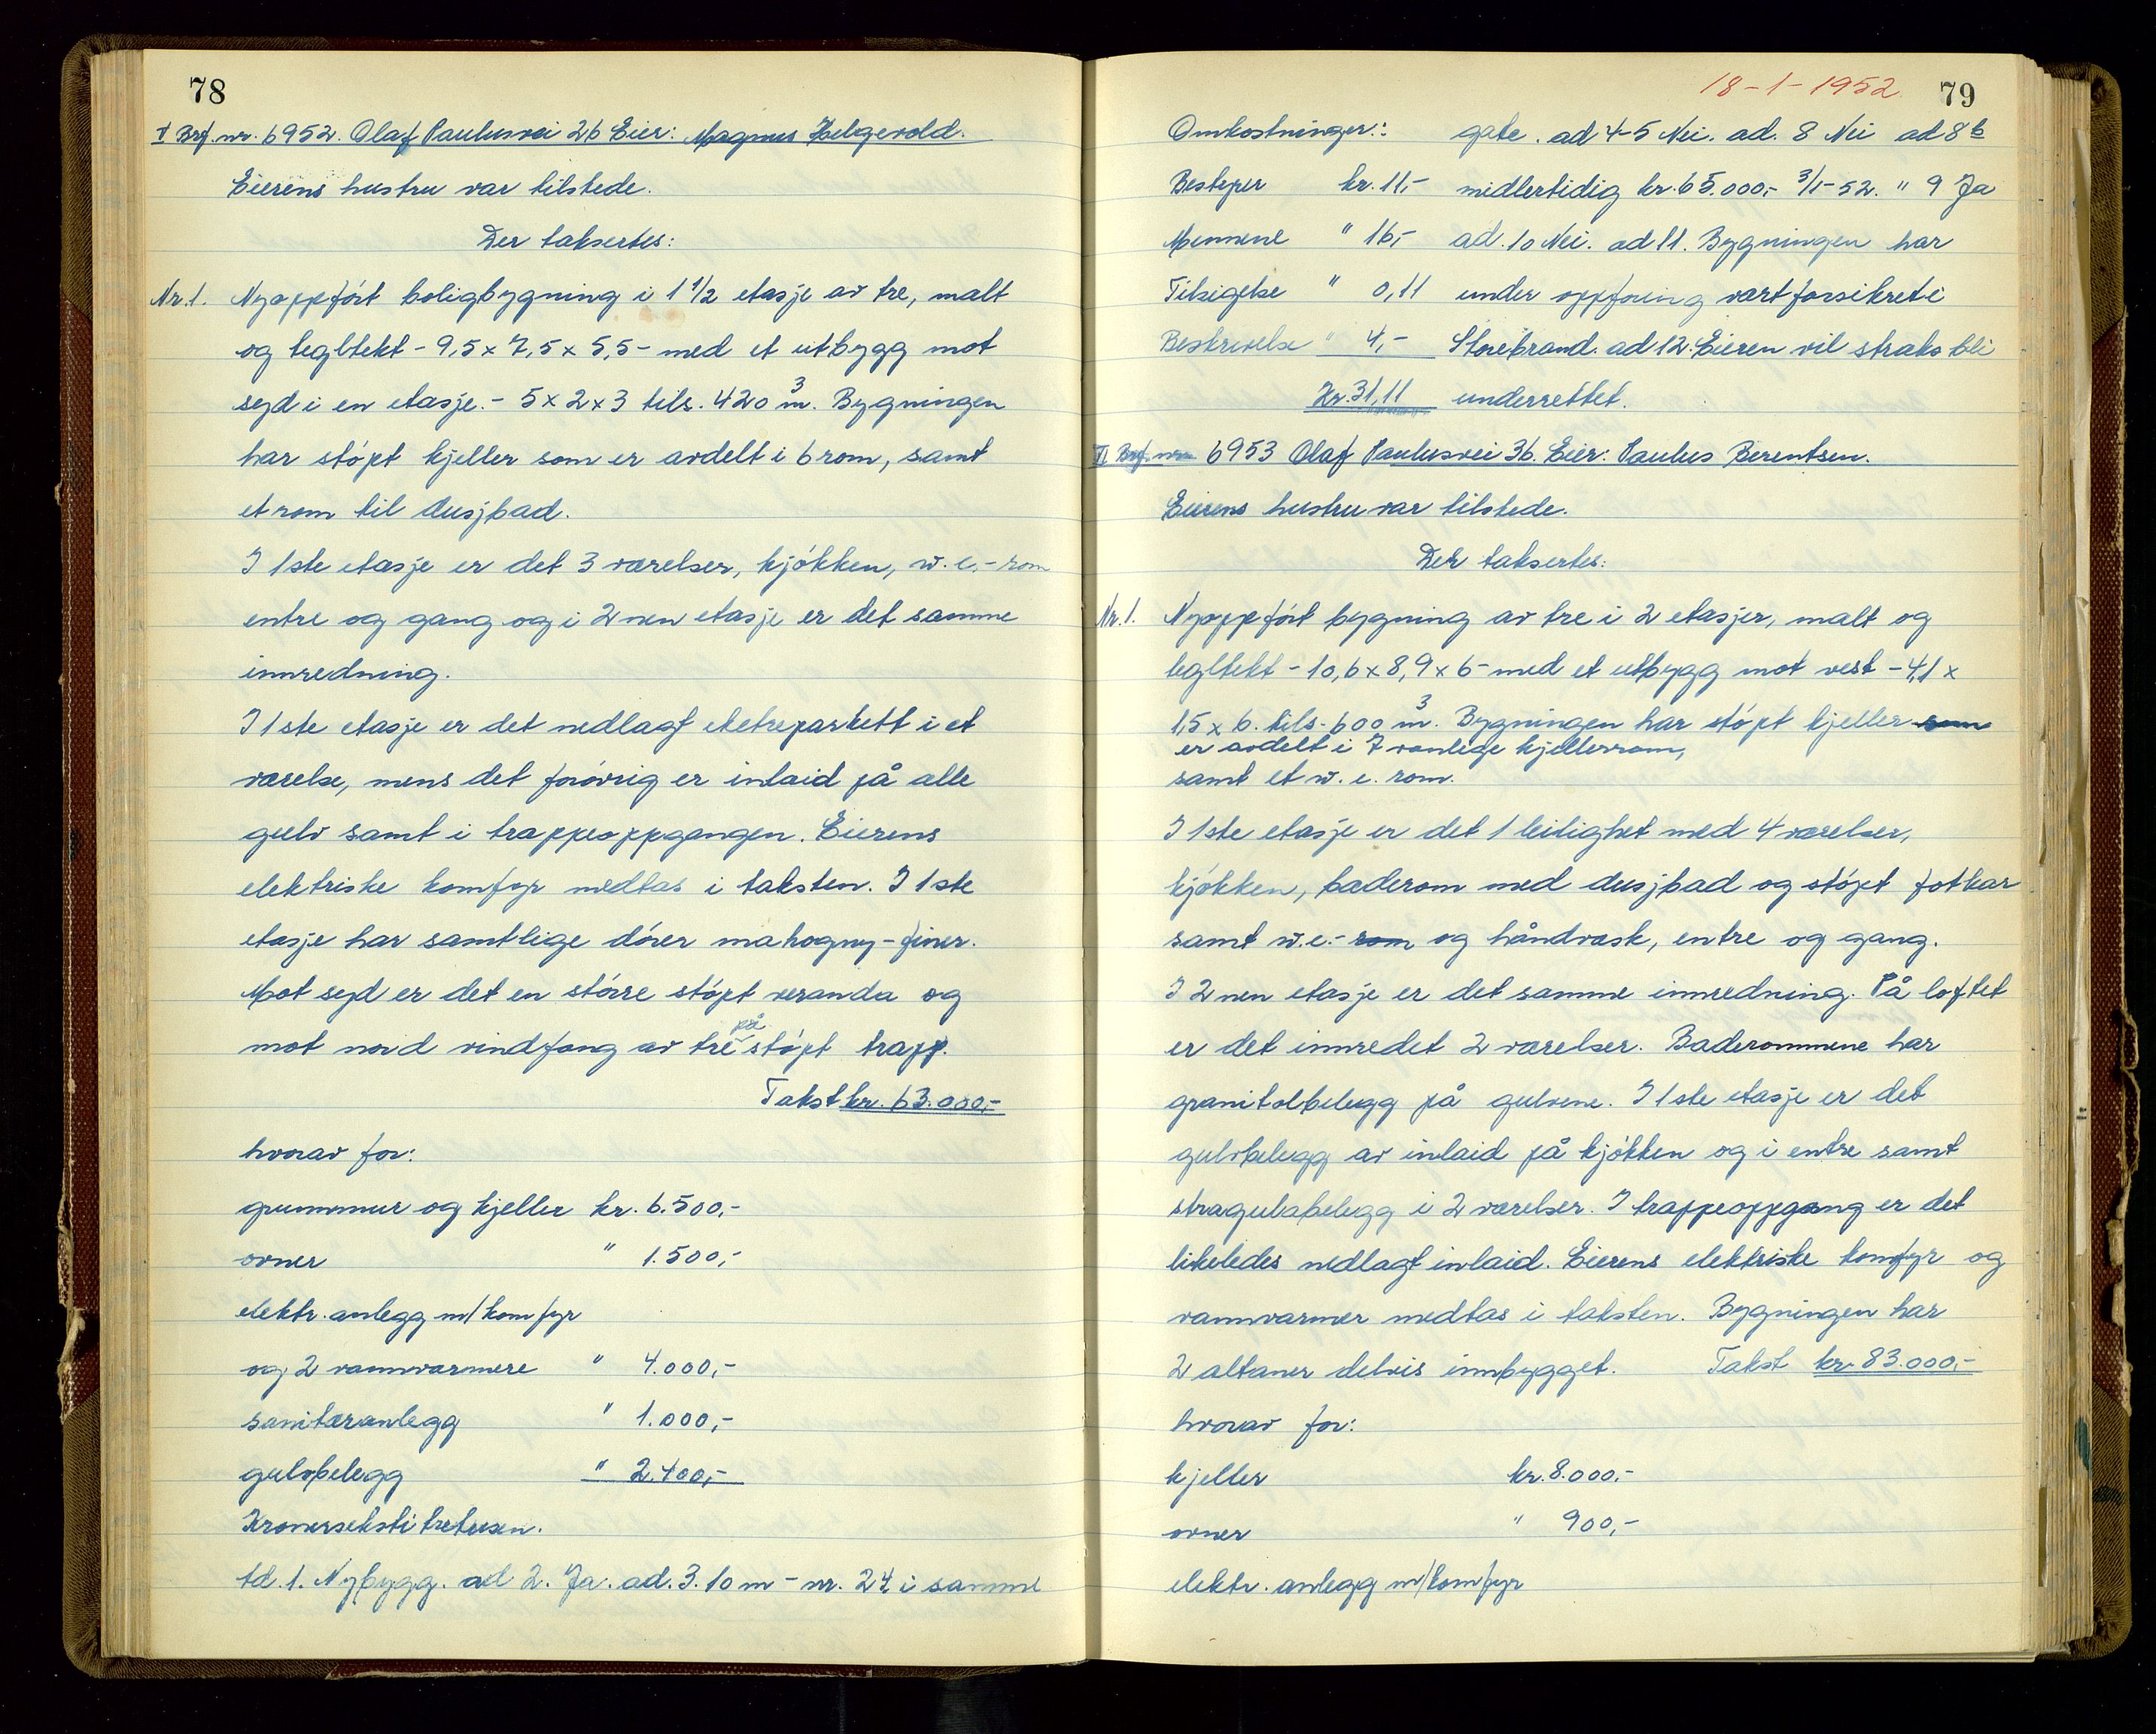 78
V Brf. nr. 6952. Olaf Paulusvei 26 Eier: Magnus Helgevold.
Eierens hustru var tilstede.
Der taksertes:
Nr. 1. Nyoppfört boligbygning i 1 1/2 etasje av tre, malt
og tegltekt - 9,5 x 7,5 x 5,5 - med et utbygg mot
syd i en etasje. - 5 x 2 x 3 tils. 420 m3. Bygningen
har stöpt kjeller som er avdelt i 6 rom, samt
et rom til dusjbad.
I 1ste etasje er det 3 værelser, kjökken, w.c.-rom
entre og gang og i 2nen etasje er det samme
innredning.
I 1ste etasje er det nedlagt eketreparkett i et
værelse, mens det forövrig er inlaid på alle
gulv samt i trappeoppgangen. Eierens
elektriske komfyr medtas i taksten. I 1ste
etasje har samtlige dörer mahogny-finer.
Mot syd er det en större stöpt veranda og
mot nord vindfang av tre på stöpt trapp.
Takst kr. 63.000,-
hvorav for:
grunnmur og kjeller kr. 6.500,-
ovner " 1.500,-
elektr. anlegg m/komfyr
og 2 vannvarmere " 4.000,-
sanitæranlegg " 1.000,-
gulvbelegg " 2.400,-
Kronersekstitretusen.
td. 1. Nybygg. ad 2. Ja. ad. 3. 10 m - nr. 24 i samme
18-1-1952. 79
Omkostninger: gate. ad 4-5 Nei. ad. 8 Nei ad 8 b
Besteyer kr. 11,- midlertidig kr. 65.000,- 3/1-52. " 9 Ja
Mennene " 16,- ad. 10 Nei. ad 11. Bygningen har
Tilsigelse " 0,11 under oppföring vært forsikret i
Beskrivelse " 4,- Storebrand. ad 12. Eieren vil straks bli
Kr. 31,11 underrettet.
VI Brf. nr. 6953 Olaf Paulusvei 36. Eier: Paulus Berentsen.
Eierens hustru var tilstede.
Der taksertes:
Nr. 1. Nyoppfört bygning av tre i 2 etasjer, malt og
tegltekt - 10,6 x 8,9 x 6 - med et utbygg mot vest - 4,1 x
1,5 x 6. tils. 600 m3. Bygningen har stöpt kjeller som
er avdelt i 7 vanlige kjellerrom,
samt et w.c. rom.
I 1ste etasje er det 1 leilighet med 4 værelser,
kjökken, baderom med dusjbad og stöpt fotkar
samt w.c.-rom og håndvask, entre og gang.
I 2nen etasje er det samme innredning. På loftet
er det innredet 2 værelser. Baderommene har
granitolbelegg på gulvene. I 1ste etasje er det
gulvbelegg av inlaid på kjökken og i entre samt
stragulabelegg i 2 værelser. I trappeoppgang er det
likeledes nedlagt inlaid. Eierens elektriske komfyr og
vannvarmer medtas i taksten. Bygningen har
2 altaner delvis innbygget. Takst kr. 83.000,-
hvorav for:
kjeller kr. 8.000.-
ovner " 900,-
elektr. anlegg m/komfyr